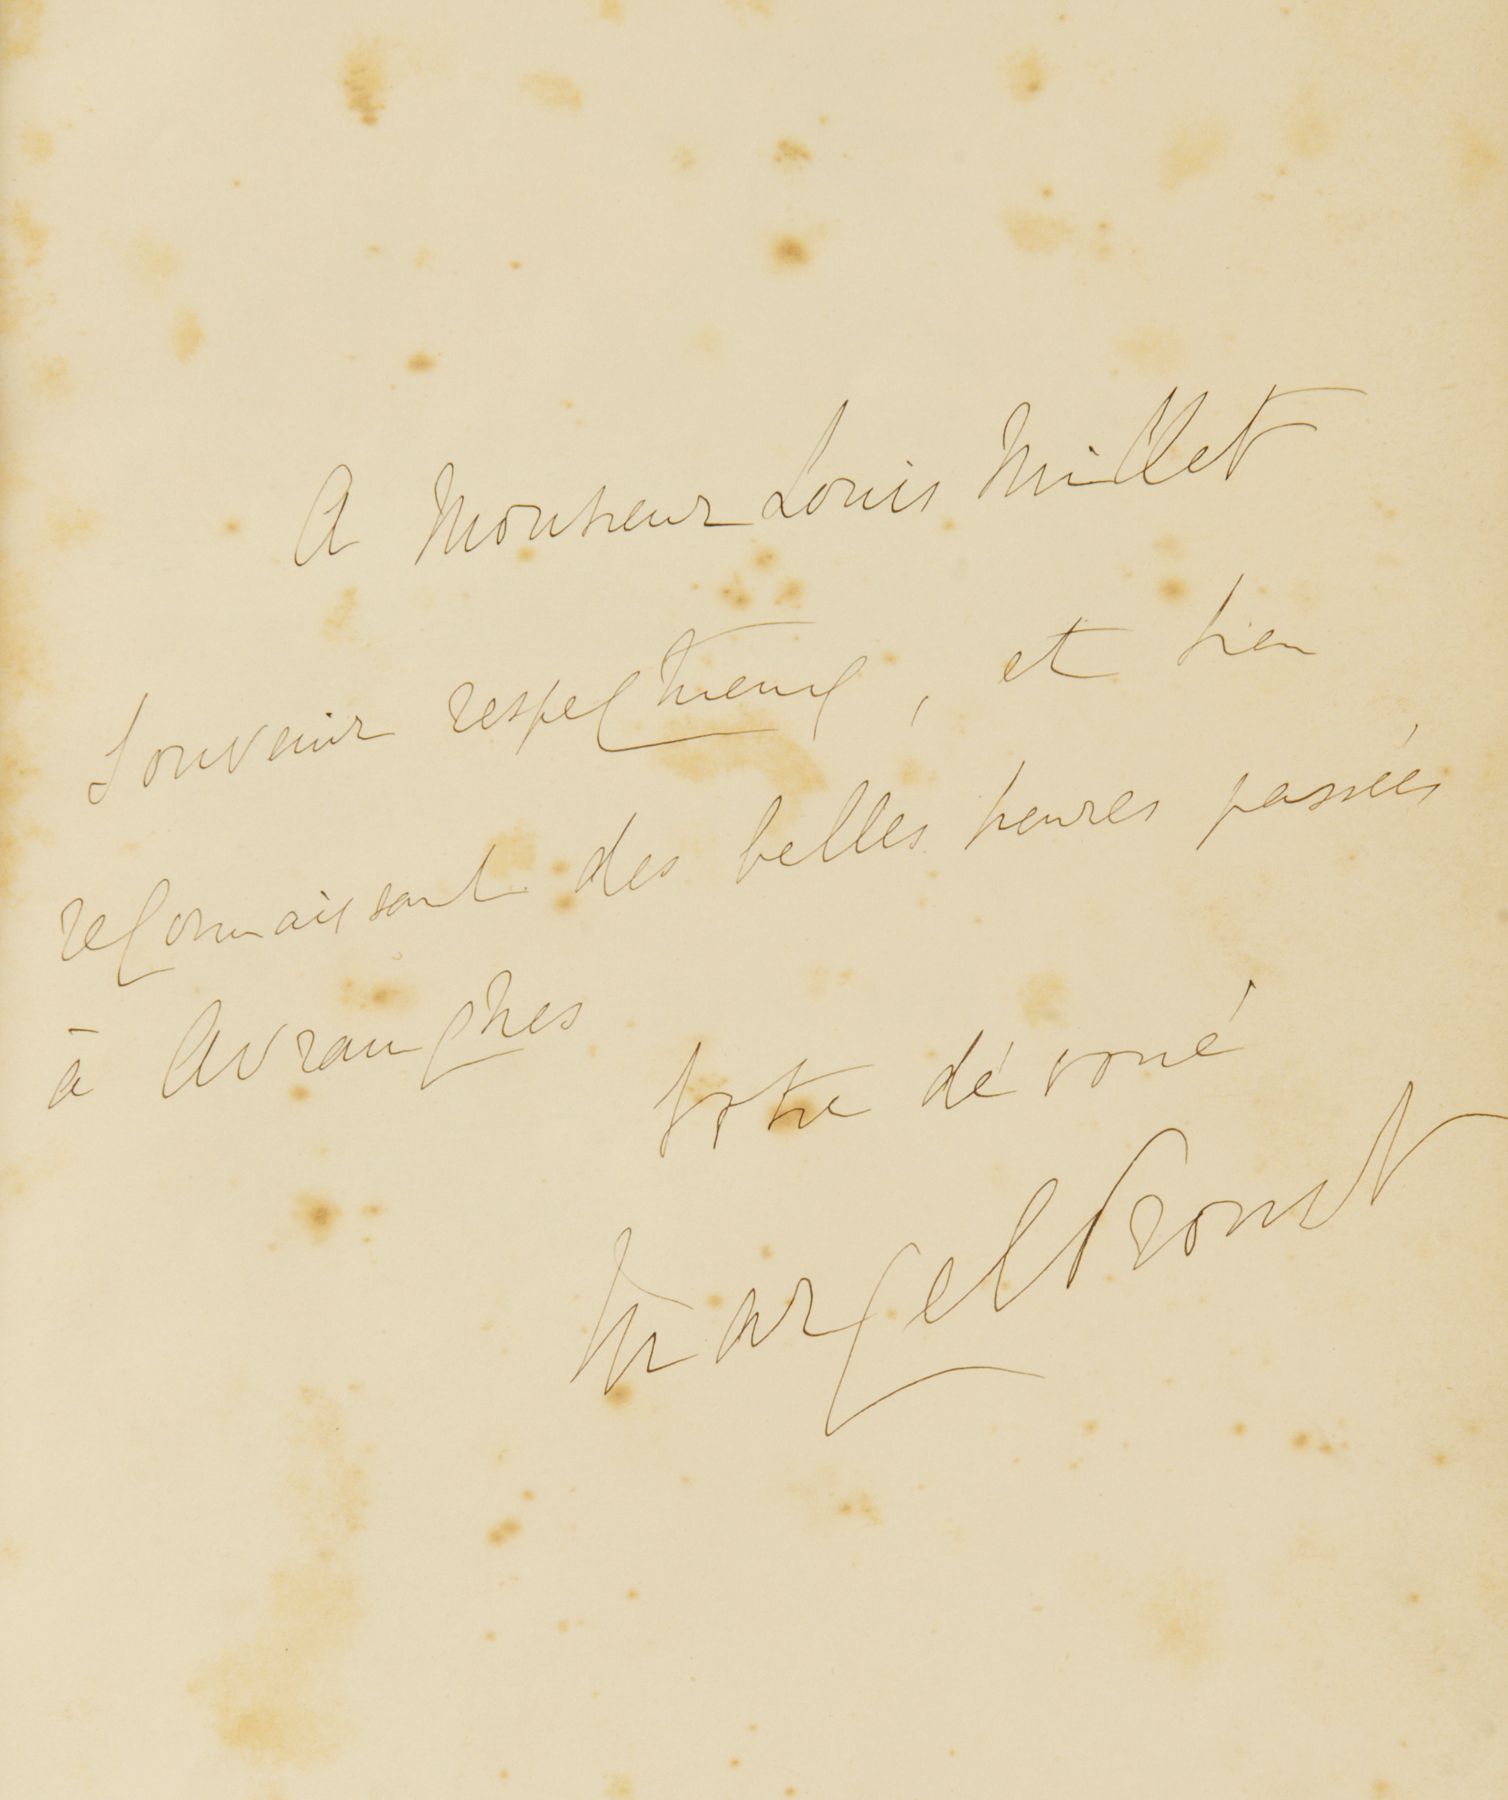 A Monsieur Louis Millet
Souvenir respectueux, et bien
reconnaissant des belles heures passées
à Avranches
Votre dévoué
Marcel Proust